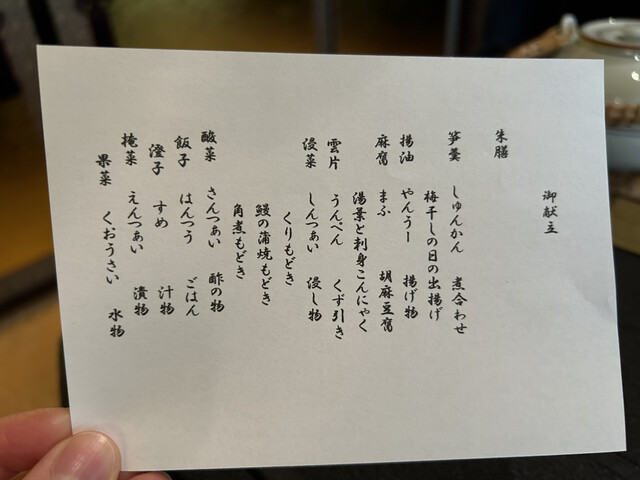 御献立
朱膳
笋羹 しゅんかん 煮合わせ
梅干しの日の出揚げ
揚油 やんうー 揚げ物
麻腐 まふ 胡麻豆腐
湯葉と刺身こんにゃく
雲片 うんぺん くず引き
浸菜 しんつぁい 浸し物
くりもどき
鰻の蒲焼もどき
角煮もどき
酸菜 さんつぁい 酢の物
飯子 はんつう ごはん
澄子 すめ 汁物
掩菜 えんつぁい 漬物
果菜 くおうさい 水物